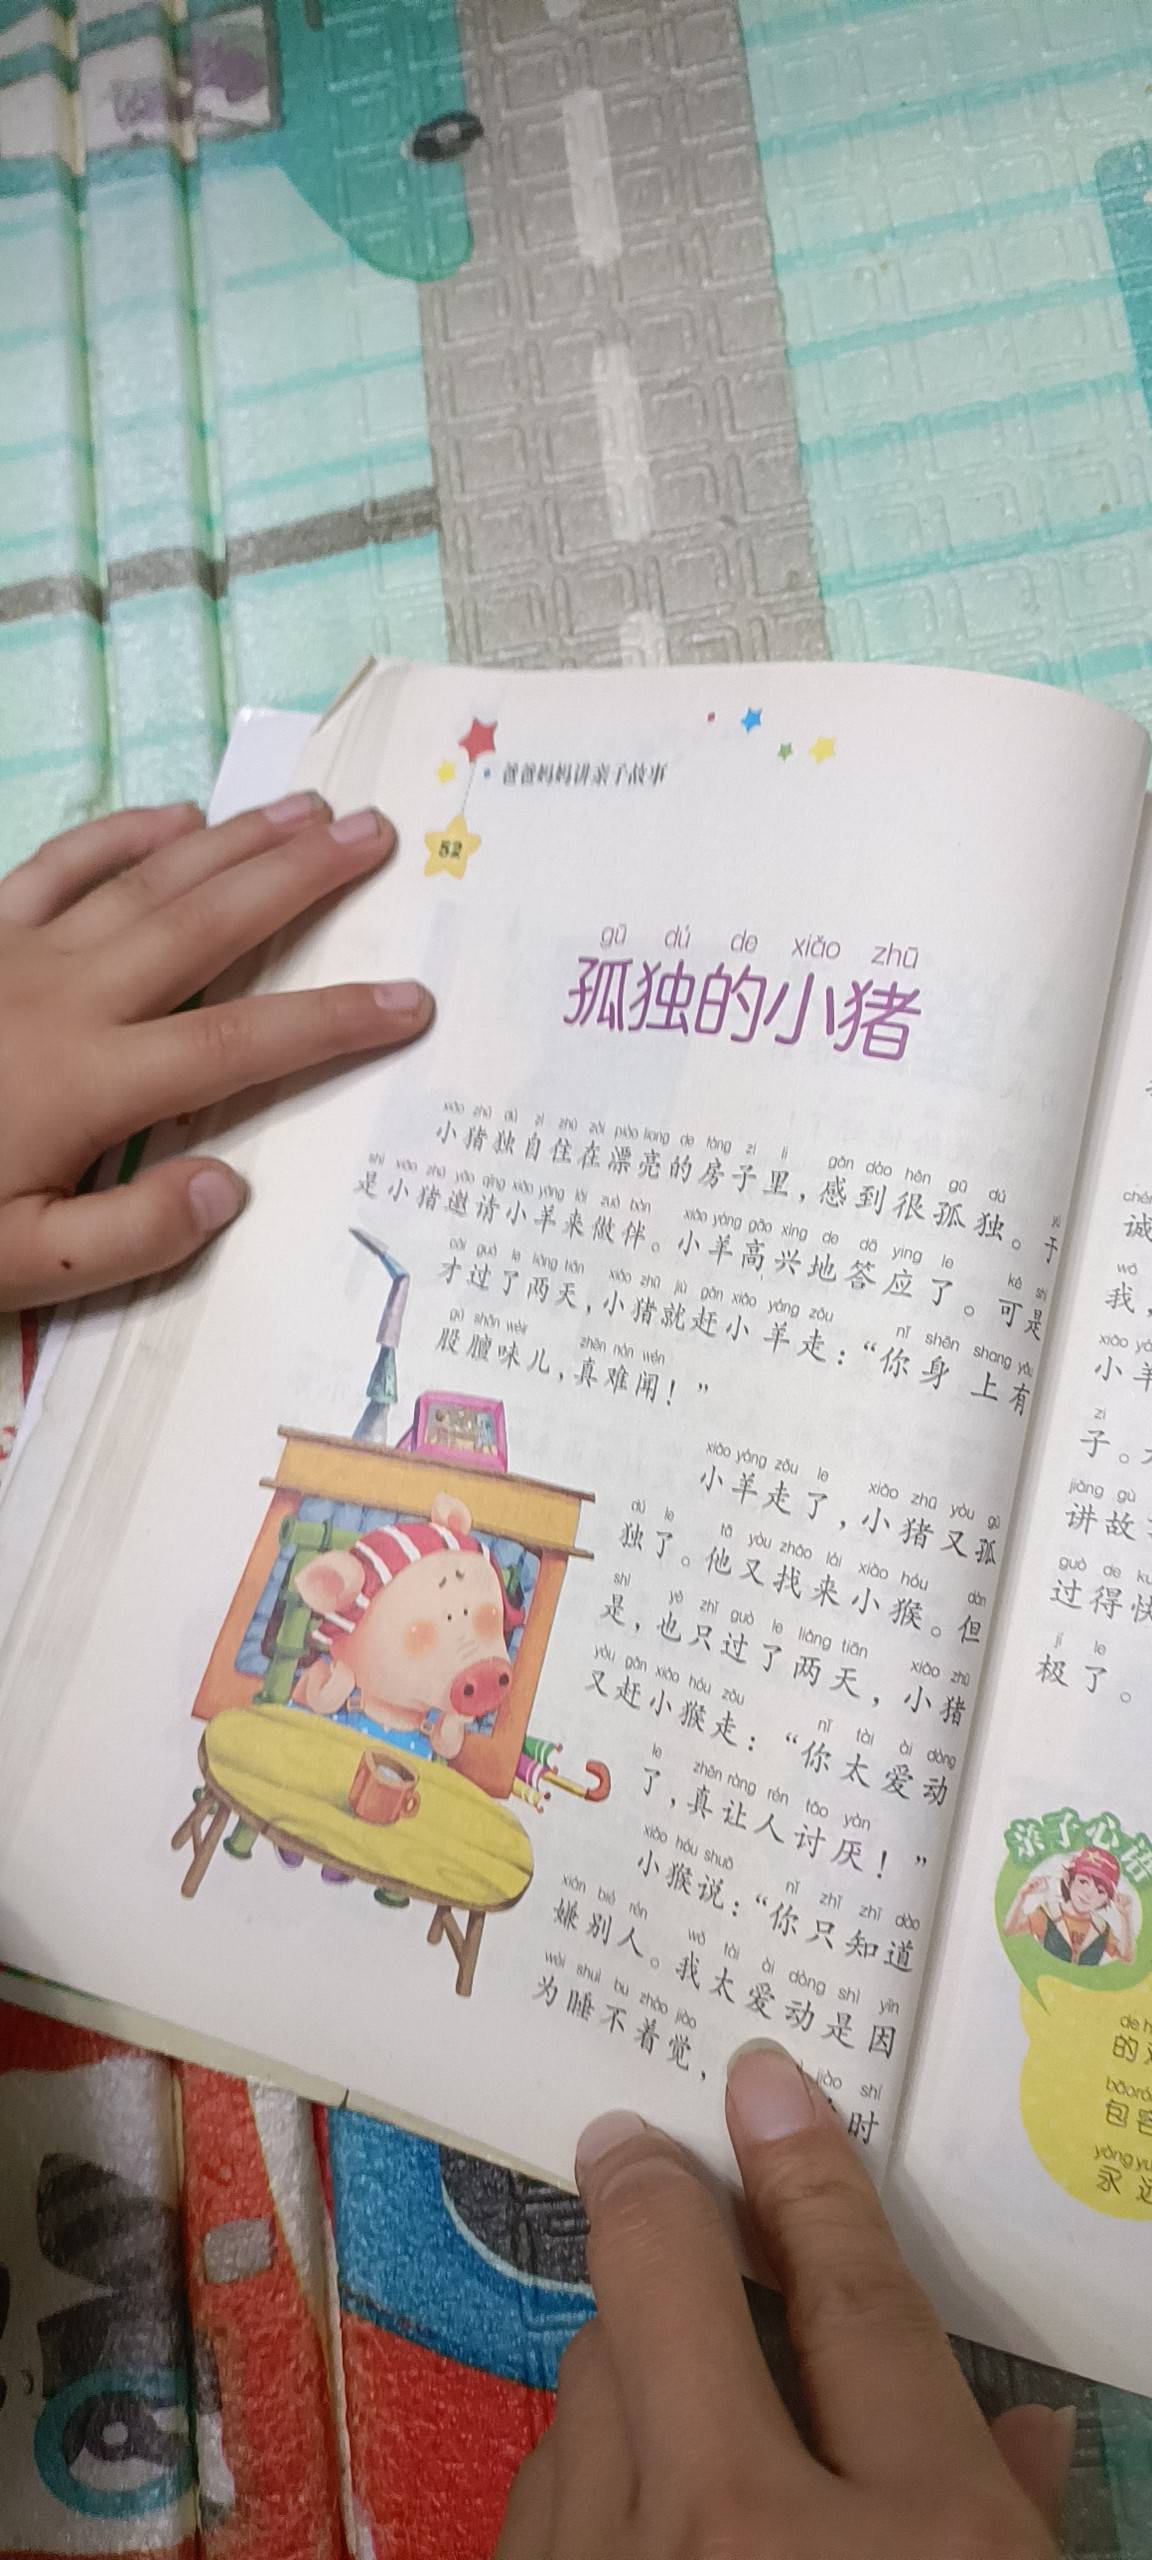 爸爸妈妈讲亲子故事
52
gū dú de xiǎo zhū
孤独的小猪
xiǎo zhū dú zì zhù zài piào liang de fáng zi li gǎn dào hěn gū dú
小猪独自住在漂亮的房子里，感到很孤独。于
shì xiǎo zhū yāo qǐng xiǎo yáng lái zuò bàn xiǎo yáng gāo xìng de dā ying le kě shì
是小猪邀请小羊来做伴。小羊高兴地答应了。可是
cái guò le liǎng tiān xiǎo zhū jiù gǎn xiǎo yáng zǒu nǐ shēn shang yǒu
才过了两天，小猪就赶小羊走：“你身上有
gǔ shān wèir zhēn nán wén
股膻味儿，真难闻！”
xiǎo yáng zǒu le xiǎo zhū yòu gū
小羊走了，小猪又孤
dú le tā yòu zhǎo lái xiǎo hóu dàn
独了。他又找来小猴。但
shì yě zhǐ guò le liǎng tiān xiǎo zhū
是，也只过了两天，小猪
yòu gǎn xiǎo hóu zǒu nǐ tài ài dòng
又赶小猴走：“你太爱动
le zhēn ràng rén tǎo yàn
了，真让人讨厌！”
xiǎo hóu shuō nǐ zhǐ zhī dào
小猴说：“你只知道
xián bié rén wǒ tài ài dòng shì yīn
嫌别人。我太爱动是因
wèi shuì bu zháo jiào jiào shí
为睡不着觉，时
chéng
诚
wǒ
我，
小羊
zi
子。
jiǎng gù
讲故
guò de ku
过得快
jí le
极了。
亲子心语
de
的
包容
永远